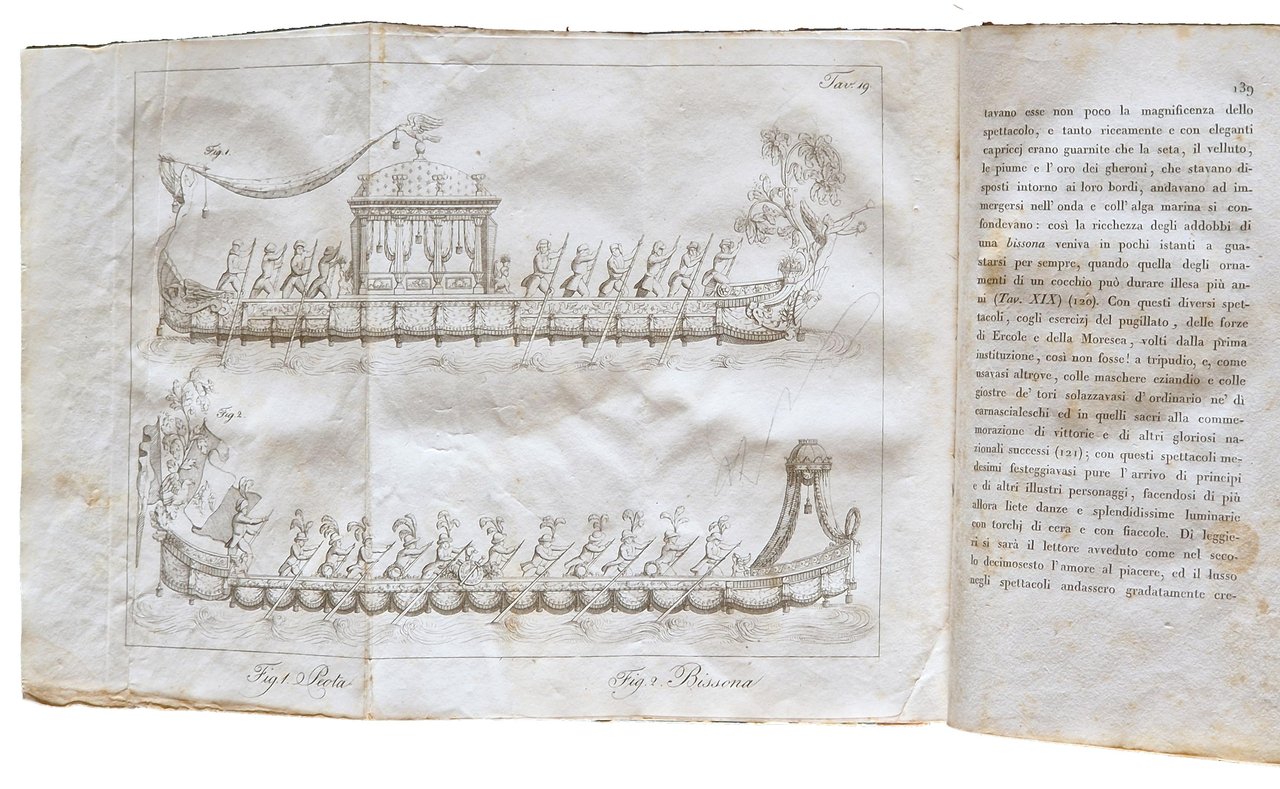 Tav. 19
Fig. 1
Fig. 2
Fig. 1. Peota
Fig. 2. Bissona
139
tavano esse non poco la magnificenza dello
spettacolo, e tanto riccamente e con eleganti
capriccj erano guarnite che la seta, il velluto,
le piume e l'oro dei gheroni, che stavano di-
sposti intorno ai loro bordi, andavano ad im-
mergersi nell'onda e coll'alga marina si con-
fondevano: così la ricchezza degli addobbi di
una bissona veniva in pochi istanti a gua-
starsi per sempre, quando quella degli orna-
menti di un cocchio può durare illesa più an-
ni (Tav. XIX) (120). Con questi diversi spet-
tacoli, cogli esercizj del pugillato, delle forze
di Ercole e della Moresca, volti dalla prima
instituzione, così non fosse! a tripudio, e, come
usavasi altrove, colle maschere eziandio e colle
giostre de' tori solazzavasi d'ordinario ne' dì
carnascialeschi ed in quelli sacri alla comme-
morazione di vittorie e di altri gloriosi na-
zionali successi (121); con questi spettacoli me-
desimi festeggiavasi pure l'arrivo di principi
e di altri illustri personaggi, facendosi di più
allora liete danze e splendidissime luminarie
con torchj di cera e con fiaccole. Di leggie-
ri si sarà il lettore avveduto come nel seco-
lo decimosesto l'amore al piacere, ed il lusso
negli spettacoli andassero gradatamente cre-